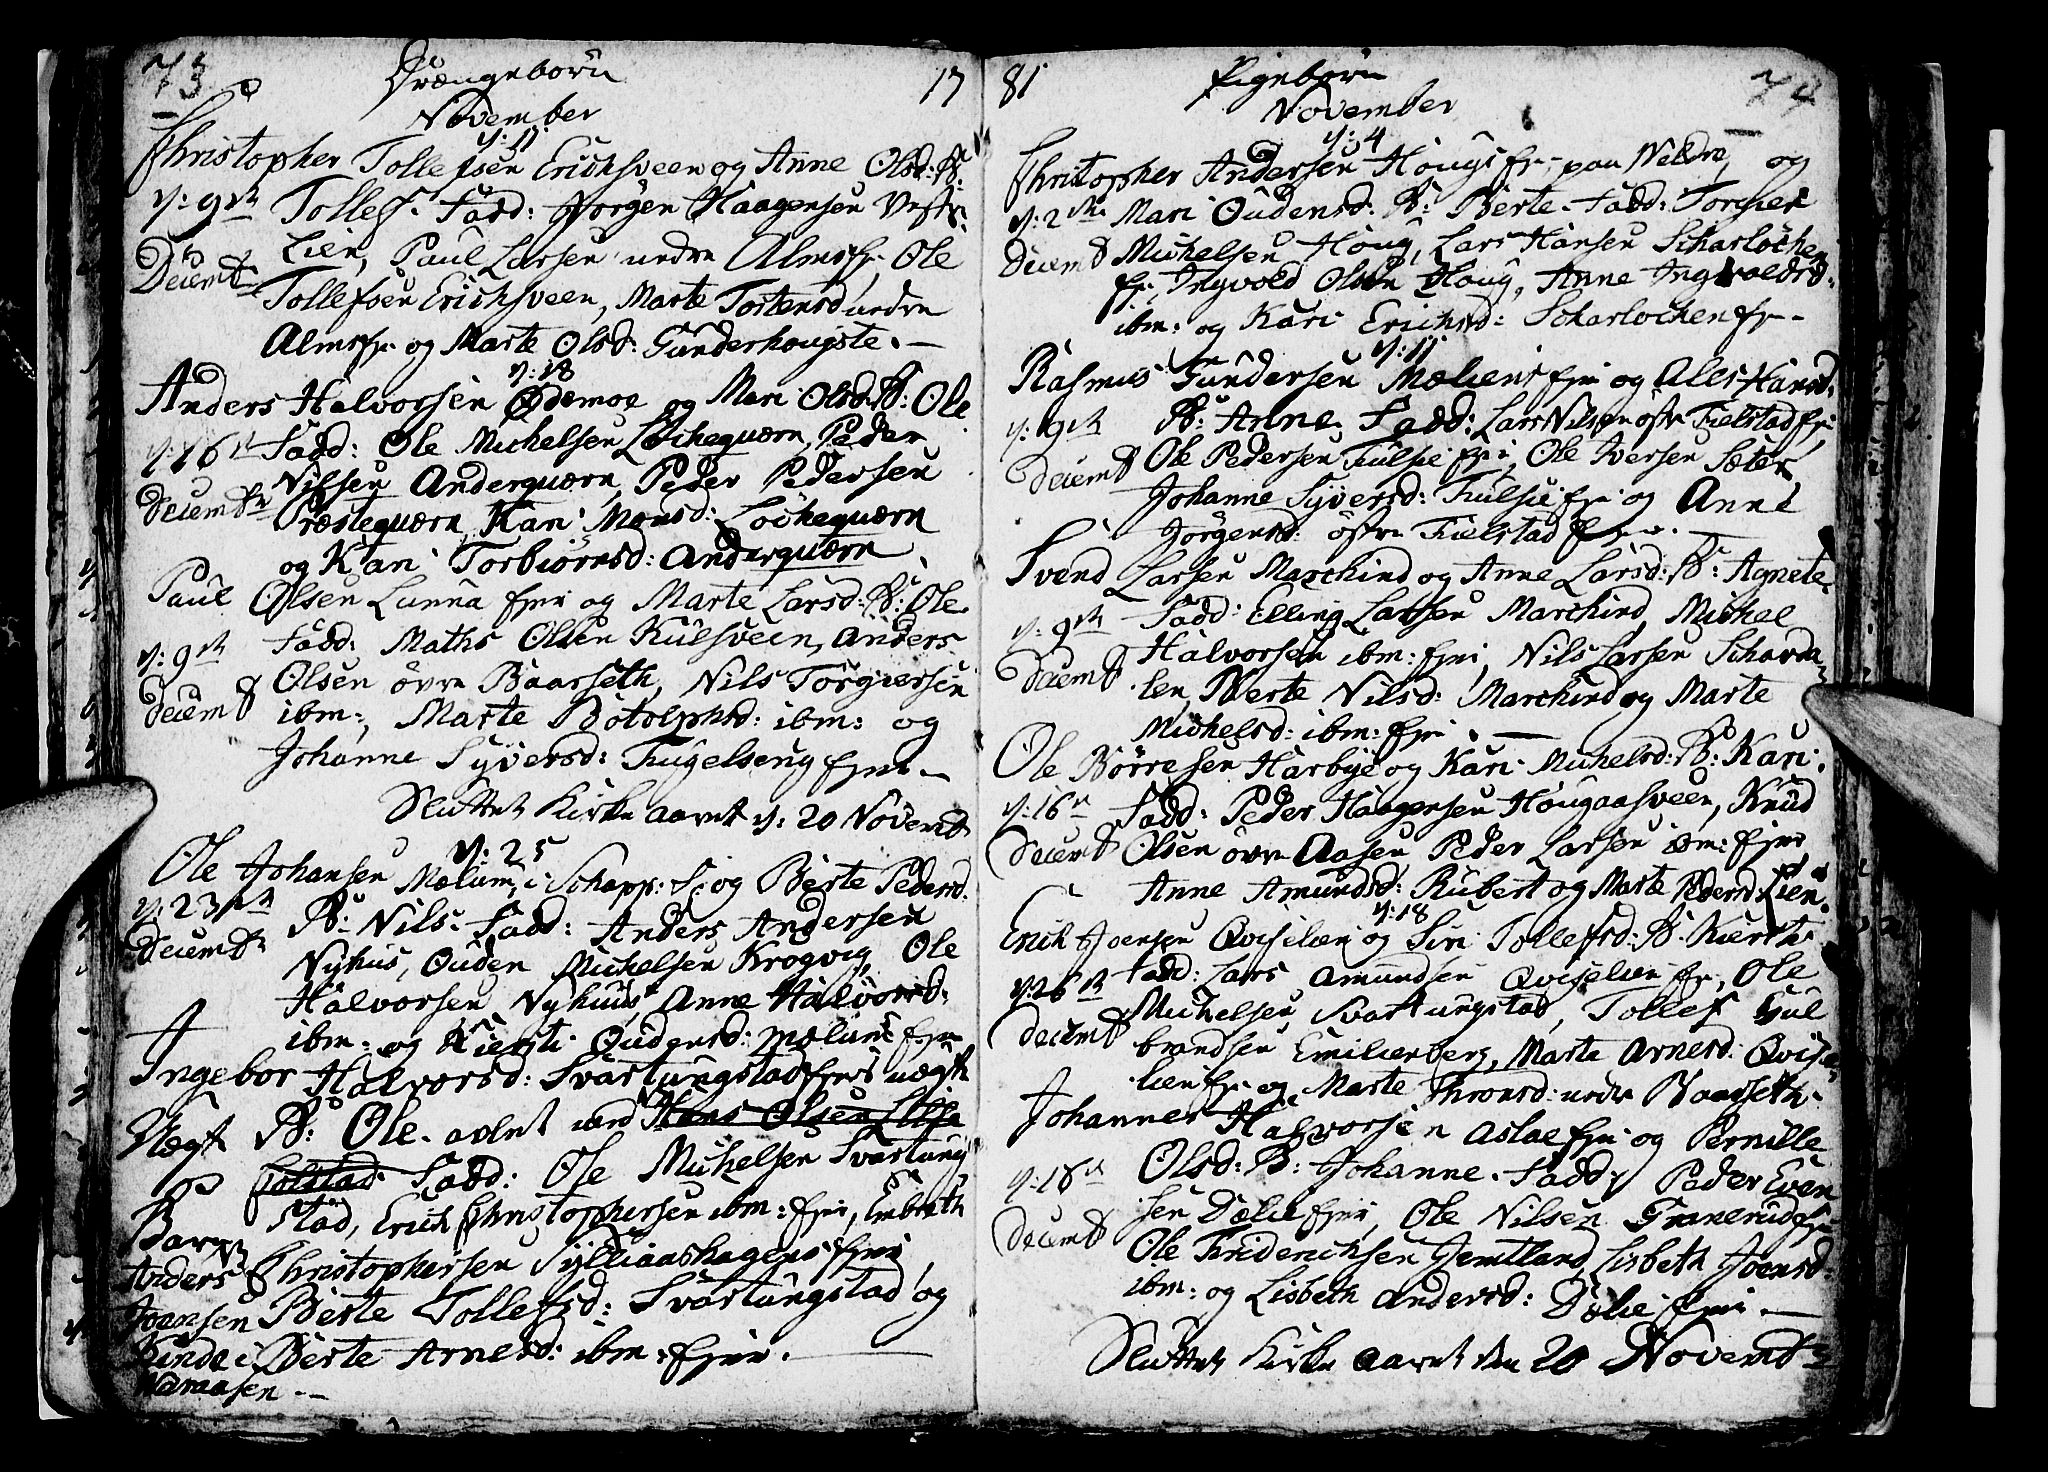 73 Drængebørn 17
November
d: 11
Christopher Tollefsen Erichsveen og Anne Olsd: B:
d: 9de Tollef. Fadd: Jørgen Haagensen Vestr
Lien, Paul Larsen nedre Almsejer Ole
Decembr Tollefsen Erichsveen, Marte Tostensd nedre
Alms og Marte Olsd: Gunderhougste. –
d: 18
Anders Halvorsen Ødemoe og Mari Olsd B: Ole
d: 16de Fadd: Ole Michelsen Løchequærn, Peder
Nilsen Anderquærn, Peder Pedersen
Decembr Præstequærn, Kari Monsd: Lochequærn
og Kari Torbiørnsd: Anderquærn
Paul Olsen Lunna ejer og Marte Larsd: B: Ole
d: 9de Fadd: Maths Olsen Kulsveen, Anders
Olsen øvre Baarseth, Nils Torgiersen
Decemb ibm:, Marte Botolphsd: ibm: og
Johanne Syversd: Fugelseng ejer. –
Sluttet Kirke aaret d: 20 Novemb
d: 25
Ole Johansen Mælum, i Schapp: S: og Berte Pedersd:
d: 23de B: Nils. Fadd: Anders Andersen
Decembr Nyhus, Ouden Michelsen Krogvig, Ole
Halvorsen Nyhuus, Anne Halvorsd:
ibm: og Kiersti Oudensd: Mælum
Ingebor Halvorsd: Svartungstad ejer uægt
Uægt B: Ole. avlet ved Hans Olsen Lille
Folstad. Fadd: Ole Michelsen Svartung
Barn stad, Erich Christophersen ibm: ejer, Embreth
Anders Christophersen Sylliaashagens ejer,
Joensen Berte Tollefsd: Svartungstad og
Kinde i Berte Arnesd: ibm: ejer. –
Naraasen. –
81 Pigebørn 74
November
d: 4
Christopher Andersen Hougs paa Nedre, og
d: 2den Mari Oudensd: B: Berte. Fadd: Torgier
Decemb Michelsen Houg, Lars Hansen Scharlochen
Ingvold Olsen Houg, Anne Ingvoldsd:
ibm: og Kari Erichsd: Scharlochen –
d: 11
Rasmus Gundersen Mæliens ejer og Ales Hansd.
d: 9de B: Anne. Fadd: Lars Nilsen østre Fielstad
Decemb Ole Pedersen Fulsie ejer, Ole Iversen Sæter
Johanne Syversd: Fulsie ejer og Anne
Jørgensd: østre Fielstad
Svend Larsen Marchind og Anne Larsd: B: Agnete
d: 9de Fadd: Elling Larsen Marchind, Michel
Halvorsen ibm: ejer, Nils Larsen Scharda
Decemb len, Berte Nilsd: Marchind og Marte
Michelsd: ibm: ejer. –
Ole Børresen Harbye og Kari Michelsd: B: Kari.
d: 16de Fadd: Peder Haagensen Hougaasveen, Knud
Decemb Olsen øvre Aasen, Peder Larsen ibm: ejer
Anne Amundsd: Rubert og Marte Pedersd: Lien.
d: 18
Erich Joensen Qviselien og Siri Tollefsd: B: Kiersti
d: 26de Fadd: Lars Amundsen Qviselien, Ole
Michelsen Svartungstad, Tollef Gul
Decemb brandsen Emilienberg, Marte Arnesd: Qvise
lien og Marte Thronsd: nedre Baarseth.
Johannes Halvorsen Aslae ejer og Pernille
d: 16de Olsd: B: Johanne. Fadd: Peder Even
sen Dælie ejer, Ole Nilsen Granerud
Decemb Ole Friderichsen Jemtland, Lisbeth Joensd:
ibm: og Lisbeth Andersd: Dælie ejer. –
Sluttet Kirke aaret den 20 Novembr